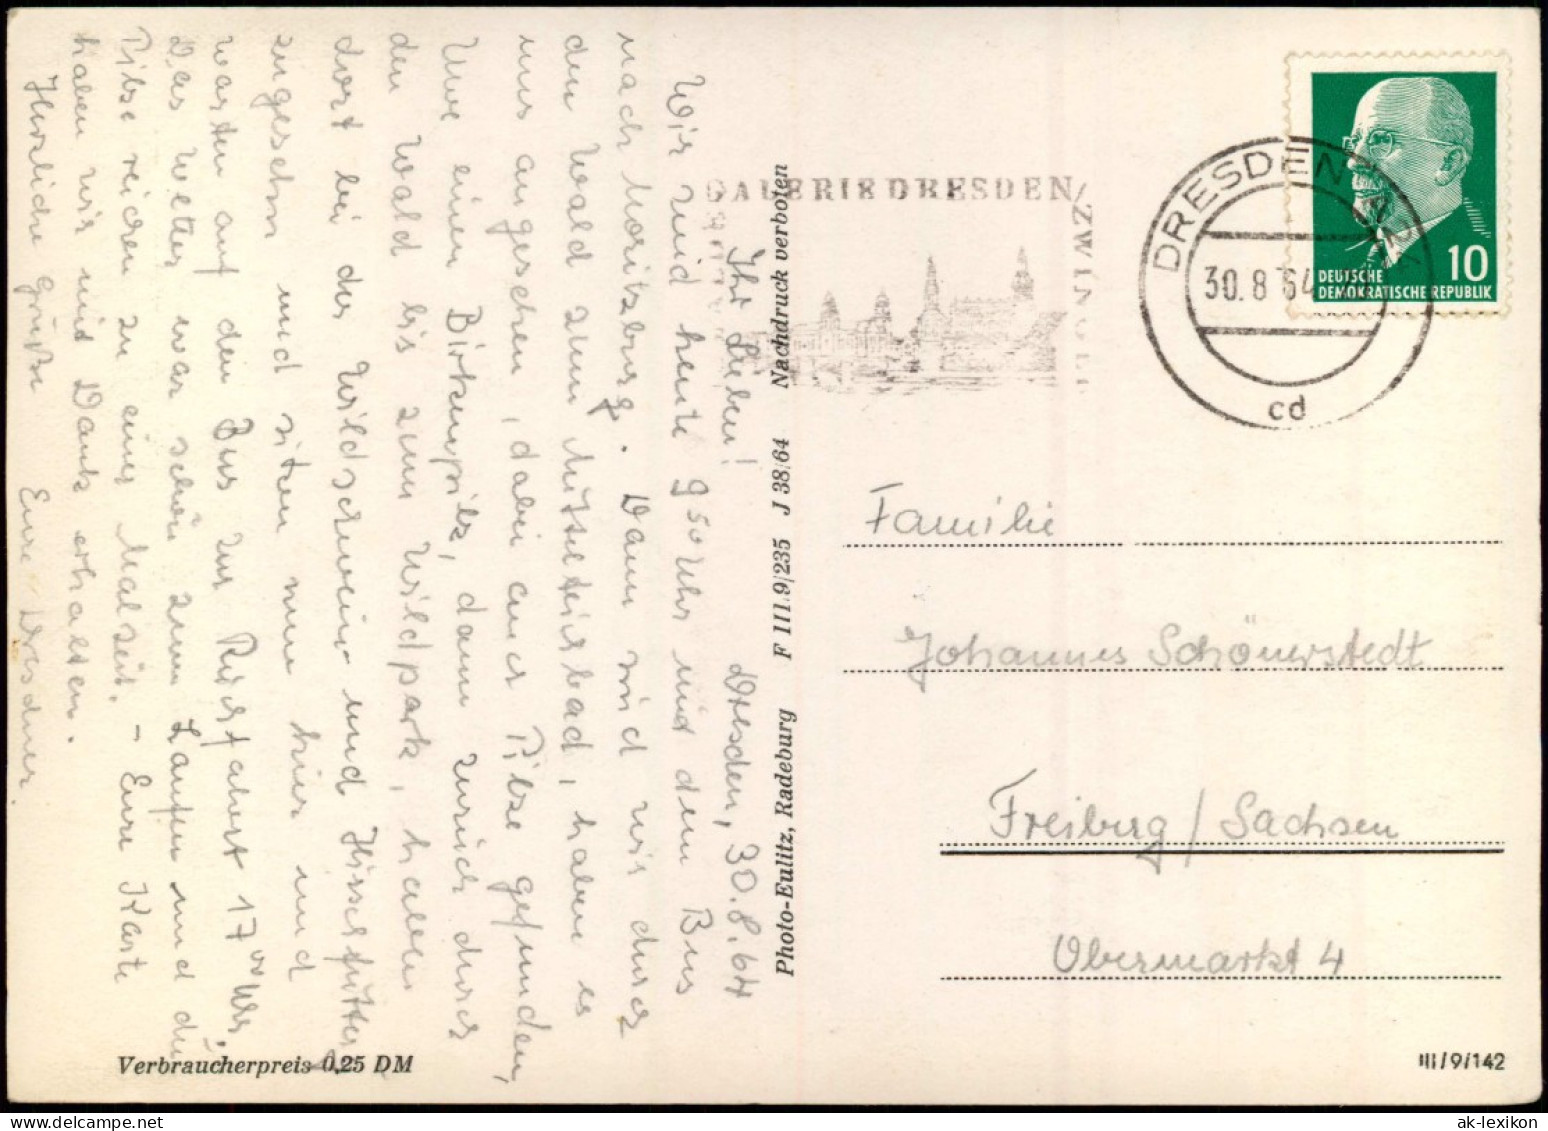 Dresden, 30.8.64
Ihr Lieben!
Wir sind heute 9 50 Uhr mit dem Bus
nach Moritzburg. Dann sind wir durch
den Wald zum Mittelteichbad, haben es
uns angesehen, dabei Pilze gefunden,
Uwe einen Birkenpilz, dann zurück durch
den Wald bis zum Wildpark, haben
dort bei der Wildschwein- und Hirschfütterg
zugesehn und sitzen nun hier und
warten auf den Bus zur Rückfahrt 17 00 Uhr.
Das Wetter war schön zum Laufen und die
Pilze reichen zu einer Malzeit. – Eure Karte
haben wir mit Dank erhalten.
Herzliche Grüße Eure Dresdner.
Verbraucherpreis 0,25 DM
Photo-Eulitz, Radeburg F III/9/235 J 38/64 Nachdruck verboten
GALERIE DRESDEN/
ZWINGER
DRESDEN
30.8.64
cd
10
DEUTSCHE
DEMOKRATISCHE REPUBLIK
Familie
Johannes Schönerstedt
Freiberg / Sachsen
Obermarkt 4
III/9/142
ak-lexikon